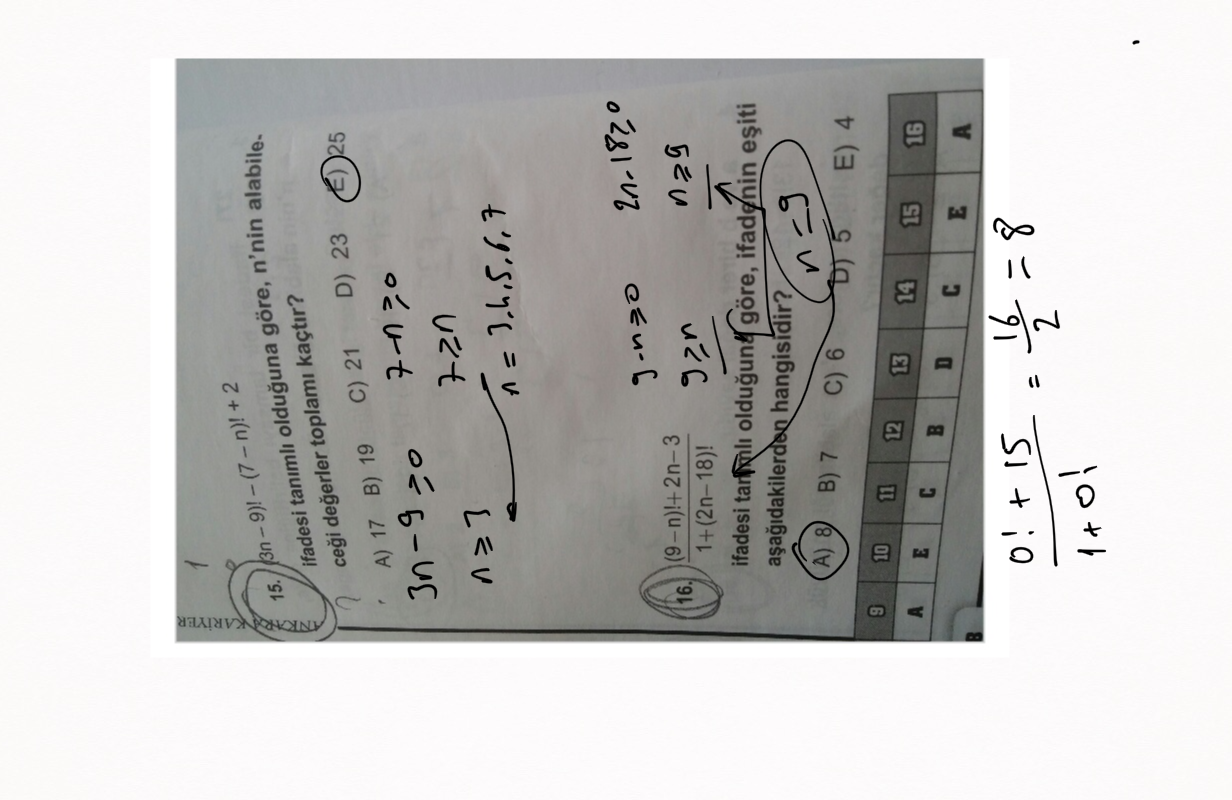 ANKARA KARİYER
1
15. (3n – 9)! – (7 – n)! + 2
ifadesi tanımlı olduğuna göre, n'nin alabile-
ceği değerler toplamı kaçtır?
A) 17 B) 19 C) 21 D) 23 E) 25
3n – 9 ≥ 0 7 – n ≥ 0
n ≥ 3 7 ≥ n
n = 3, 4, 5, 6, 7
9 – n ≥ 0 2n – 18 ≥ 0
9 ≥ n n ≥ 9
16. (9 – n)! + 2n – 3
1 + (2n – 18)!
ifadesi tanımlı olduğuna göre, ifadenin eşiti
aşağıdakilerden hangisidir?
n = 9
A) 8 B) 7 C) 6 D) 5 E) 4
9 10 11 12 13 14 15 16
A E C B D C E A
B
0! + 15 = 16 = 8
1 + 0! 2